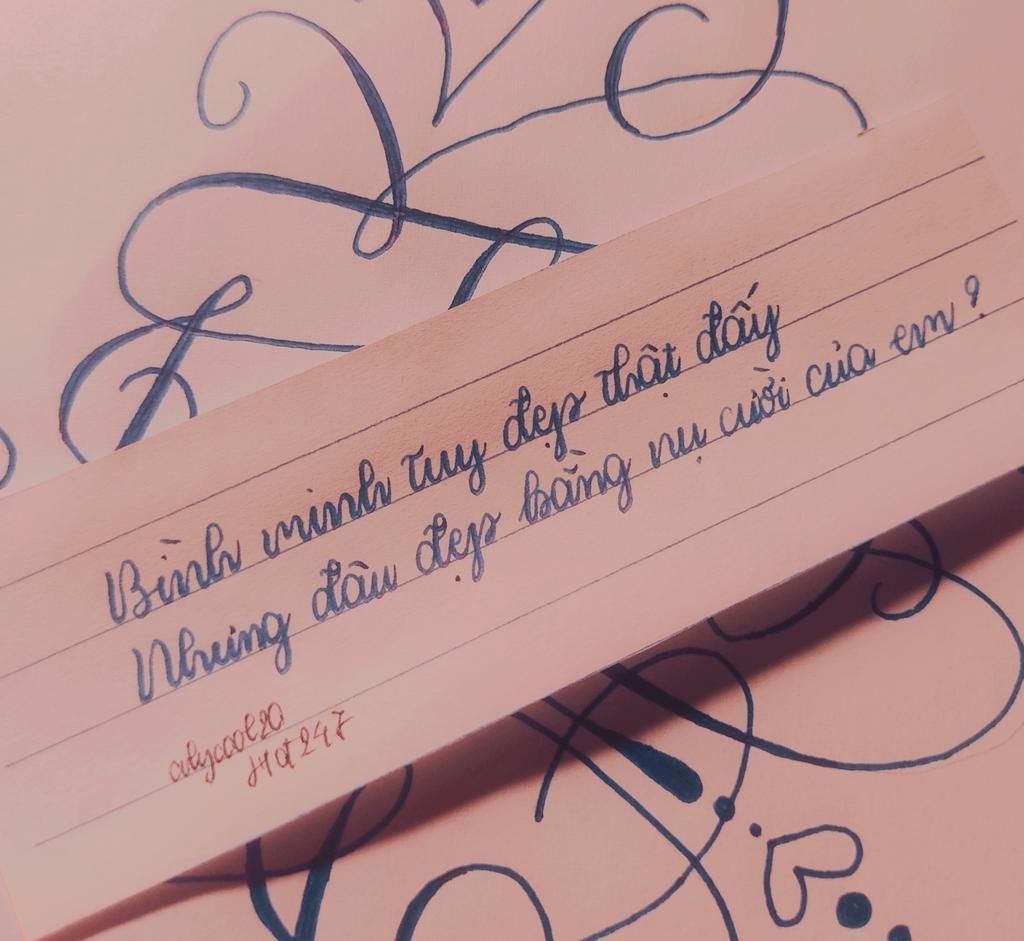 Bình minh tuy đẹp thật đấy
Nhưng đâu đẹp bằng nụ cười của em?
alycool20
HΑ247